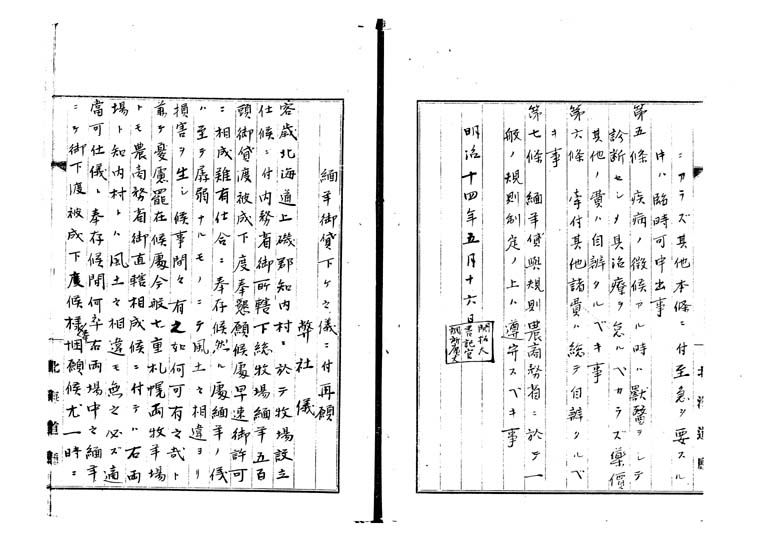 ニカヽラズ其他本條ニ付至急ヲ要スル
申ハ臨時可申出事
第五條 疾病ノ徴候アル時ハ獸醫ヲシテ
診断セシメ其治療ヲ怠ルベカラズ藥價
其他ノ費ハ自辨タルベキ事
第六條 牽付其他諸費ハ総テ自辨タルベ
キ事
第七條 緬羊貸與規則農商務省ニ於テ一
般ノ規則制定ノ上ハ遵守スベキ事
明治十四年五月十六日
開拓大書記官
調所廣丈
緬羊御貸下ケ之儀ニ付再願
弊社儀
客歳北海道上磯郡知内村ニ於テ牧場設立
仕候ニ付内務省御所轄下総牧場緬羊五百
頭御貸渡被成下度奉懇願候處早速御許可
ニ相成難有仕合ニ奉存候然ル處緬羊ノ儀
ハ至テ孱弱ナルモノニテ風土之相違ヨリ
損害ヲ生シ候事間々有之如何可有之哉ト
前ケ憂慮罷在候處今般七重札幌両牧羊場
トモ農商務省御直轄相成候ニ付テハ右両
場ト知内村トハ風土之相違モ無之必ズ適
當可仕儀ト奉存候間何卒右両場中之緬羊
ニテ御下渡被成下度候様奉悃願候尤一時ニ
北海道廳